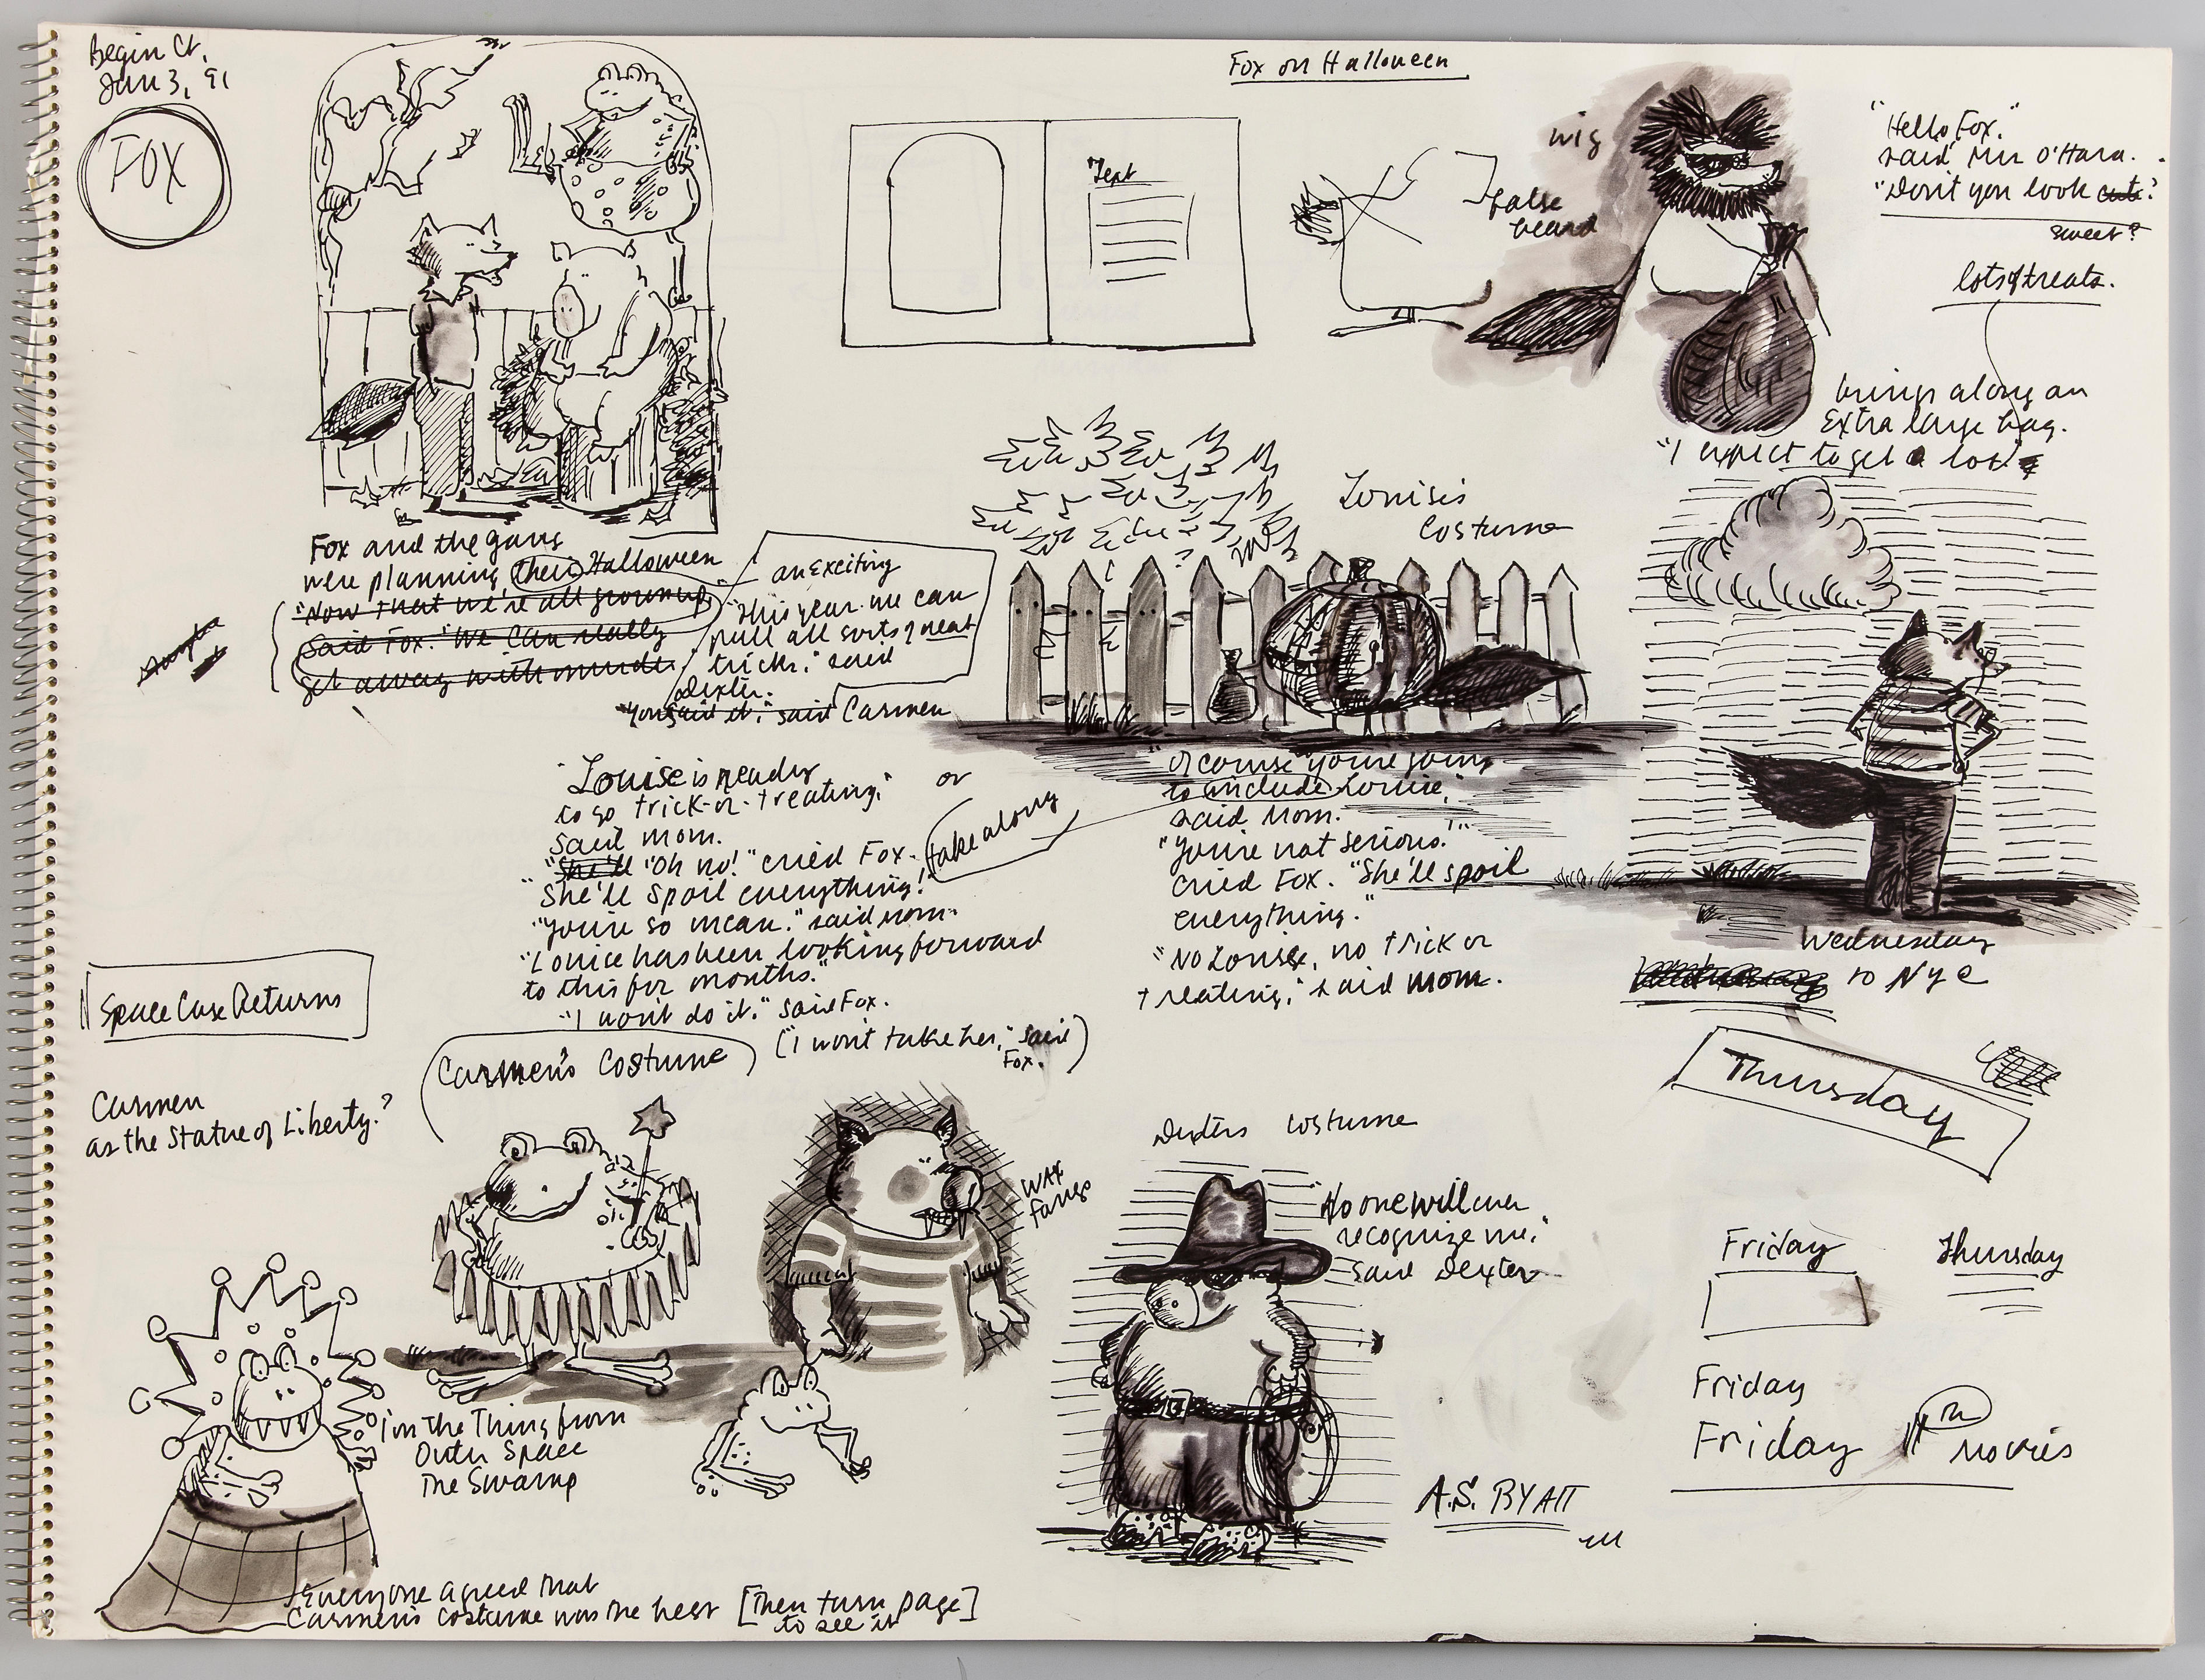 Begin Ct.
Jan 3, 91
FOX
Fox on Halloween
"Text
wig
false
beard
"Hello Fox."
said Mrs O'Hara.
"Don't you look cute?
sweet?
lots of treats.
brings along an
Extra large bag.
"I expect to get a lot"
Fox and the gang
were planning their Halloween
"Now that we're all grown up,
Said Fox. "We can really
get away with murder."
an exciting
"This year we can
pull all sorts of neat
tricks." said
Dexter.
"You said it." said Carmen
Louise's
Costume
"Louise is ready
to go trick-or-treating,"
said Mom.
"She'll "Oh no!" cried Fox.
"She'll spoil everything!"
"You're so mean." said Mom.
"Louise has been looking forward
to this for months."
"I won't do it." said Fox.
("I won't take her," said
Fox.)
or
take along
"Of course you're going
to include Louise,"
said Mom.
"You're not serious!"
cried Fox. "She'll spoil
everything."
"No Louise, no trick or
treating," said Mom.
Wednesday
to NYC
Thursday
Space Case Returns
Carmen
as the Statue of Liberty?
Carmen's Costume
wax
fangs
Dexter's costume
"No one will ever
recognize me."
said Dexter
Friday
Thursday
Friday
Friday
movies
I'm the Thing from
Outer Space
The Swamp
A.S. BYATT
Everyone agreed that
Carmen's costume was the best [Then turn page]
to see it